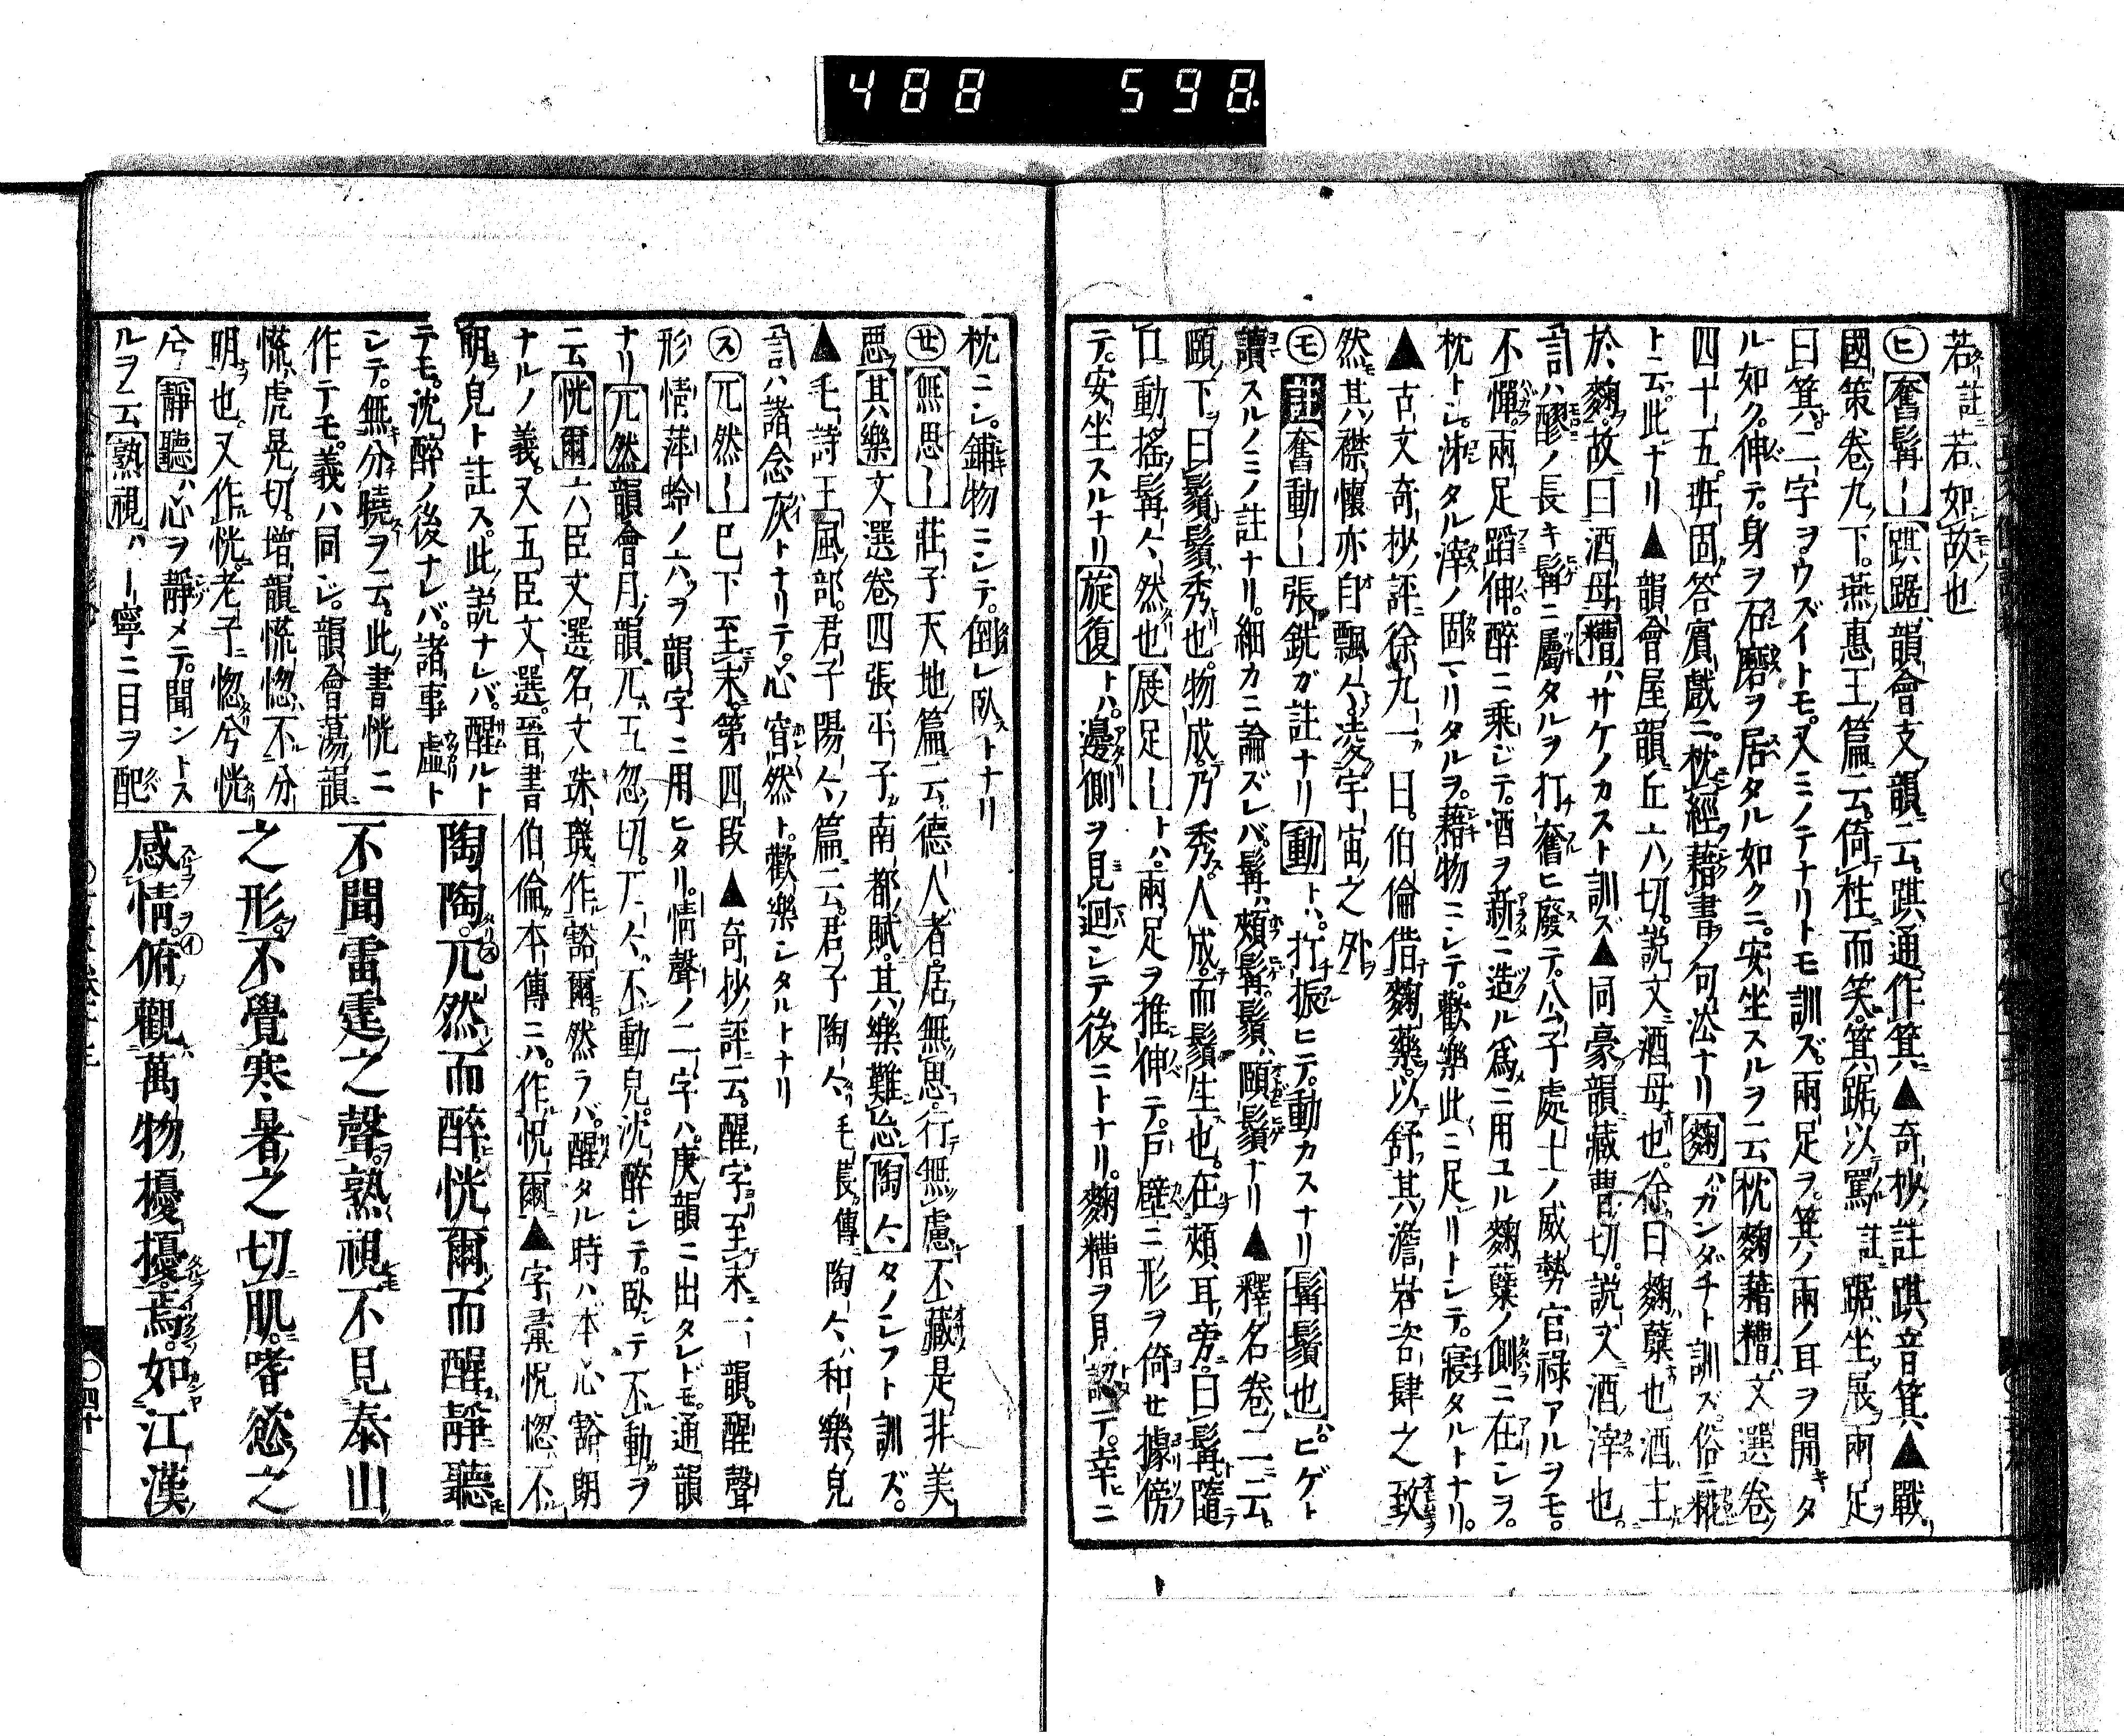 488 598
若註若如故也
㋪奮髯〡踑踞韻會支韻云踑通作箕▲奇抄註踑音箕▲戰
國策卷九下燕惠王篇云倚柱而笑箕踞以罵註踞坐展兩足
曰箕二字ヲウズイトモ又ミノテナリトモ訓ズ兩足ヲ箕ノ兩ノ耳ヲ開タ
ル如ク伸テ身ヲ石磨ヲ居タル如クニ安坐スルヲ云枕麴藉糟文選卷
四十五班固答賓戲ニ枕經藉書ノ句法ナリ麴ハカンダチト訓ズ俗ニ糀
ト云此ナリ▲韻會屋韻丘六切説文酒母也徐曰麴糵也酒主
於麴故曰酒母糟ハサケノカスト訓ズ▲同豪韻藏曹切説文酒滓也
言ハ醪ノ長キ髯ニ屬タルヲ打奮ヒ廢テ公子處士ノ威勢官祿アルヲモ
不憚兩足蹈伸醉ニ乘ジテ酒ヲ新ニ造ル爲ニ用ユル麴糵ノ側ニ在シヲ
枕トシ沫タル滓ノ固マリタルヲ藉物ニシテ歡樂此ニ足リトシテ寢タルトナリ
▲古文奇抄評徐九一曰伯倫借麴藥以舒其澹岩咨肆之致
然其襟懷亦自飄〻凌宇宙之外
㋲註奮動〡張銑ガ註ナリ動トハ打振ヒテ動カスナリ髯鬚也ハヒゲト
讀スルノミノ註ナリ細カニ論ズレバ髯ハ頰髯鬚ハ頤鬚ナリ▲釋名卷二ニ云
頤下曰鬚鬚秀也物成乃秀人成而鬚生也在頰耳旁曰髯隨
口動搖髯〻然也展足〡トハ兩足ヲ推伸テ戸壁ニ形ヲ倚セ據傍
テ安坐スルナリ旋復トハ邊側ヲ見迴シテ後ニトナリ麴糟ヲ見認テ幸ニ
枕ニシ鋪物ニシテ倒レ臥トナリ
㋝無思〡莊子天地篇云德人者居無思行無慮不藏是非美
惡其樂文選卷四張平子南都賦其樂難忘陶〻タノシフト訓ズ
▲毛詩王風部君子陽〻篇云君子陶〻毛萇傳陶〻和樂皃
言ハ諸念灰トナリテ心窅然ト歡樂シタルトナリ
㋜兀然〡已下至末第四段▲奇抄評云醒字至末一韻醒聲
形情萍蛉ノ六ヲ韻字ニ用ヒタリ情聲ノ二字ハ庚韻ニ出タレドモ通韻
ナリ兀然韻會月韻兀五忽切兀〻不動皃沈醉シテ臥シテ不動ヲ
云恍爾六臣文選名文珠璣作豁爾然ラバ醒タル時ハ本心豁朗
ナルノ義又五臣文選晉書伯倫本傳ニハ作怳爾▲字彙怳惚不
明皃ト註ス此説ナレバ醒ルト
テモ沈醉ノ後ナレバ諸事虛ト
シテ無分曉ヲ云此書恍ニ
作テモ義ハ同シ韻會蕩韻
慌虎晃切增韻慌惚不分
明也又作恍老子惚兮恍
兮靜聽ハ心ヲ靜メテ聞ントス
ルヲ云熟視ハ〡寧ニ目ヲ配
陶陶兀然而醉恍爾而醒靜聽
不聞雷霆之聲熟視不見泰山
之形不覺寒暑之切肌嗜慾之
感情俯觀萬物擾擾焉如江漢
四十